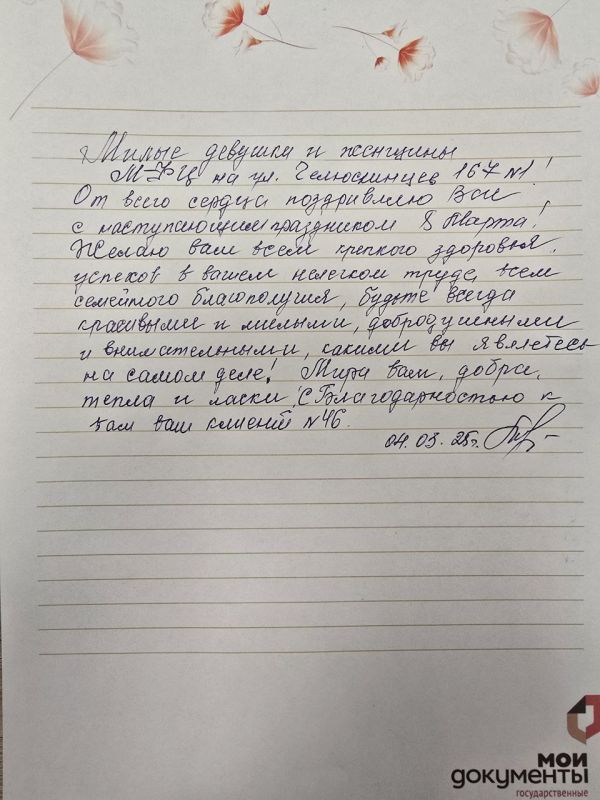 Милые девушки и женщины
МФЦ на ул. Челюскинцев 167 №1!
От всего сердца поздравляю Вас
с наступающим праздником 8 Марта!
Желаю вам всем крепкого здоровья,
успехов в вашем нелегком труде, всем
семейного благополучия, будьте всегда
красивыми и милыми, добродушными
и внимательными, какими вы являетесь
на самом деле! Мира вам, добра,
тепла и ласки! С Благодарностью к
вам ваш клиент №46.
04.03.25г.
мои
документы
государственные